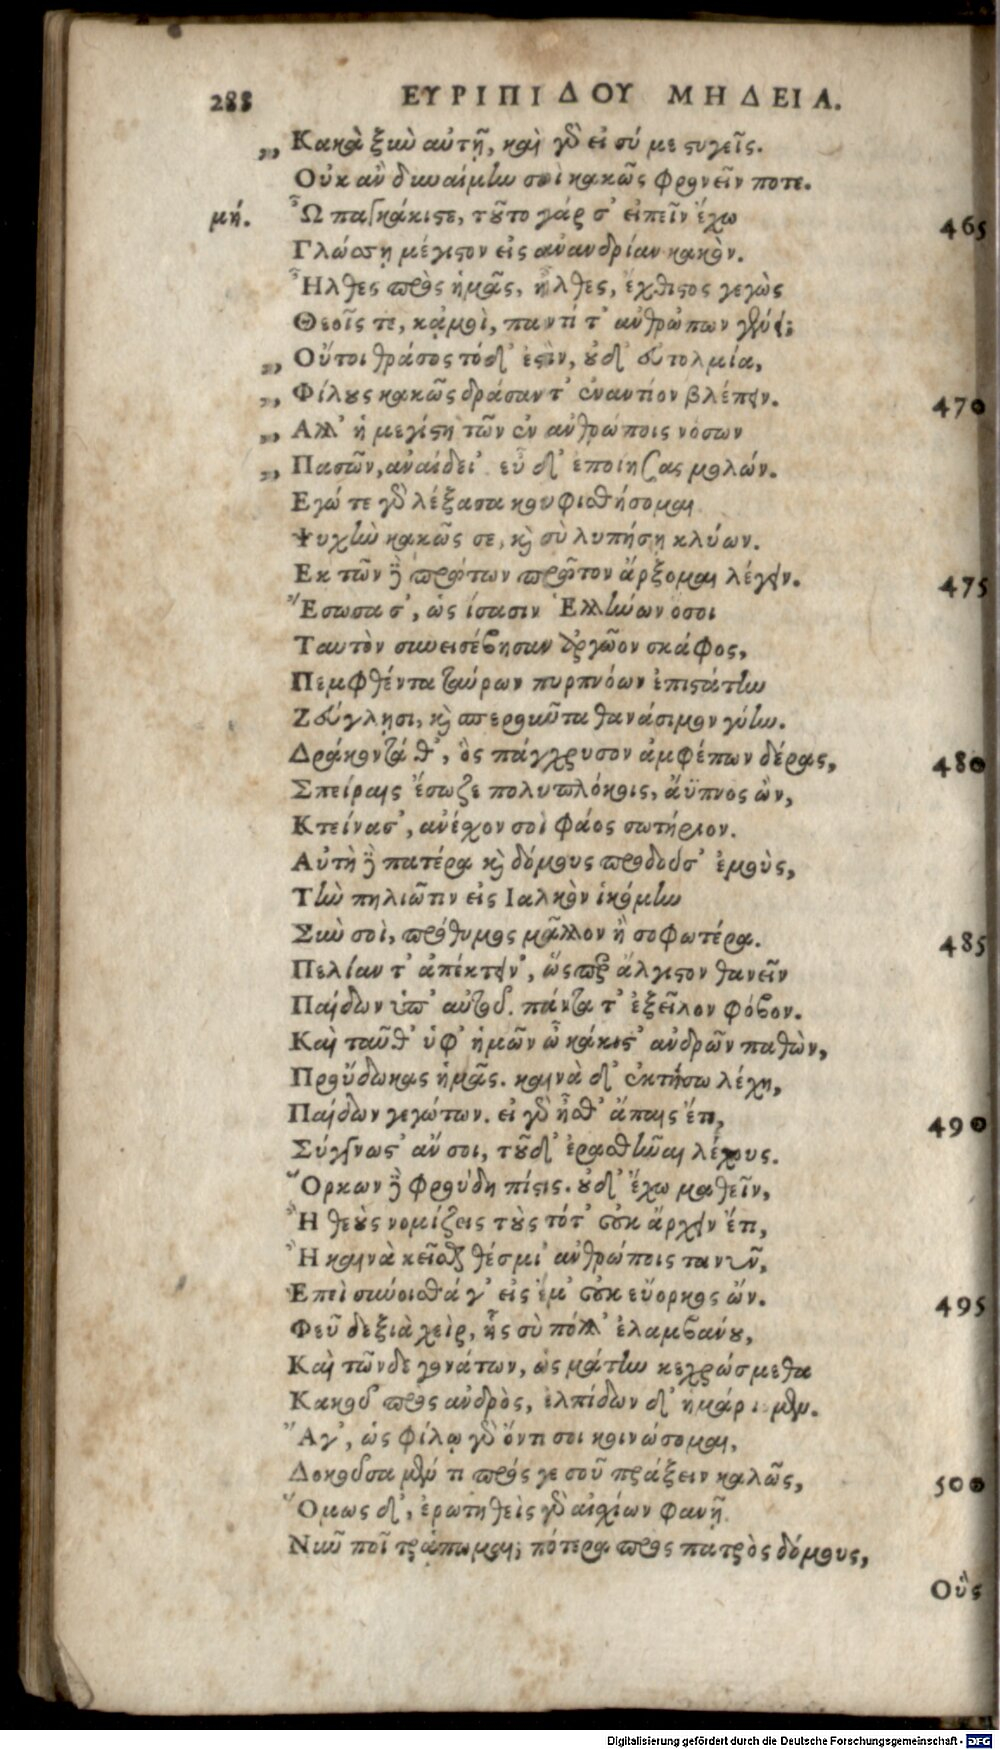 288 ΕΥΡΙΠΙΔΟΥ ΜΗΔΕΙΑ.
„ Κακὰ ξὺν αὐτῇ, καὶ γὰρ εἰ σύ με στυγεῖς.
Οὐκ ἂν δυναίμην σοὶ κακῶς φρονεῖν ποτε.
μή. Ὦ παγκάκιστε, τοῦτο γάρ σ' εἰπεῖν ἔχω 465
Γλώσσῃ μέγιστον εἰς ἀνανδρίαν κακὸν.
Ἦλθες πρὸς ἡμᾶς, ἦλθες, ἔχθιστος γεγὼς
Θεοῖς τε, κἀμοὶ, παντί τ' ἀνθρώπων γένει;
„ Οὔτοι θράσος τόδ' ἐστὶν, οὐδ' εὐτολμία,
„ Φίλους κακῶς δράσαντ' ἐναντίον βλέπειν. 470
„ Ἀλλ' ἡ μεγίστη τῶν ἐν ἀνθρώποις νόσων
„ Πασῶν, ἀναίδει' εὖ δ' ἐποίησας μολών.
Εγώ τε γὰρ λέξασα κουφισθήσομαι
Ψυχὴν κακῶς σε, καὶ σὺ λυπήσῃ κλύων.
Εκ τῶν δὲ πρώτων πρῶτον ἄρξομαι λέγειν. 475
Ἔσωσα σ', ὡς ἴσασιν Ἑλλήνων ὅσοι
Ταυτὸν συνεισέβησαν Ἀργῶον σκάφος,
Πεμφθέντα ταύρων πυρπνόων ἐπιστάτην
Ζεύγλῃσι, καὶ σπεροῦντα θανάσιμον γύην.
Δράκοντά θ', ὃς πάγχρυσον ἀμφέπων δέρας, 480
Σπείραις ἔσωζε πολυπλόκοις, ἄϋπνος ὢν,
Κτείνασ', ἀνέχον σοὶ φάος σωτήριον.
Αὐτὴ δὲ πατέρα καὶ δόμους προδοῦσ' ἐμοὺς,
Τὴν πηλιῶτιν εἰς Ιαλκὸν ἱκόμην
Σὺν σοὶ, πρόθυμος μᾶλλον ἢ σοφωτέρα. 485
Πελίαν τ' ἀπέκτειν', ὥσπερ ἄλγιστον θανεῖν
Παίδων ὑπ' αὐτοῦ. πάντα τ' ἐξεῖλον φόβον.
Καὶ ταῦθ' ὑφ' ἡμῶν ὦ κάκιστ' ἀνδρῶν παθὼν,
Προὔδωκας ἡμᾶς. καινὰ δ' ἐκτήσω λέχη,
Παίδων γεγώτων. εἰ γὰρ ἦσθ' ἄπαις ἔτι, 490
Σύγγνωστ' ἄν σοι, τοῦδ' ἐρασθῆναι λέχους.
Ὅρκων δὲ φρούδη πίστις. οὐδ' ἔχω μαθεῖν,
Ἢ θεοὺς νομίζεις τοὺς τότ' οὐκ ἄρχειν ἔτι,
Ἢ καινὰ κεῖσθαι θέσμι' ἀνθρώποις τανῦν,
Επεὶ σύνοισθά γ' εἰς ἔμ' οὐκ εὔορκος ὤν. 495
Φεῦ δεξιὰ χεὶρ, ἧς σὺ πόλλ' ἐλαμβάνου,
Καὶ τῶνδε γονάτων, ὡς μάτην κεχρώσμεθα
Κακοῦ πρὸς ἀνδρὸς, ἐλπίδων δ' ἡμάρτομεν.
Ἄγ', ὡς φίλῳ γὰρ ὄντι σοι κοινώσομαι,
Δοκοῦσα μέν τι πρός γε σοῦ πράξειν καλῶς, 500
Ὅμως δ', ἐρωτηθεὶς γὰρ αἰσχίων φανῇ
Νῦν ποῖ τράπωμαι; πότερα πρὸς πατρὸς δόμους,
Οὓς
Digitalisierung gefördert durch die Deutsche Forschungsgemeinschaft - DFG